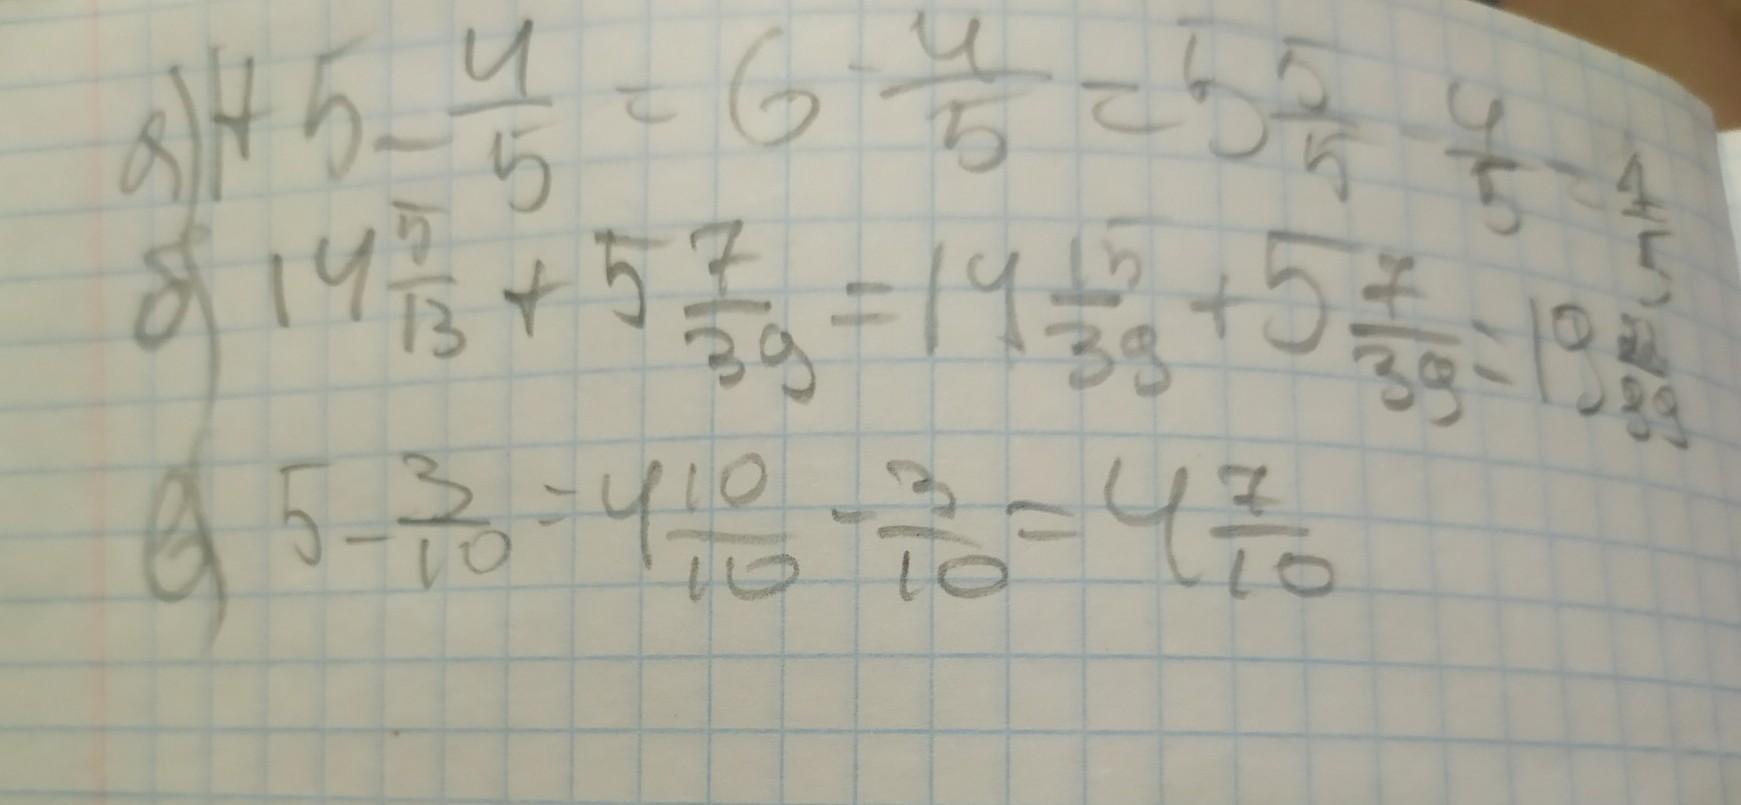 а) 1+5-4/5=6-4/5=5 5/5-4/5=
б) 14 5/13+5 7/39=14 15/39+5 7/39=19 22/39
в) 5-3/10=4 10/10-3/10=4 7/10